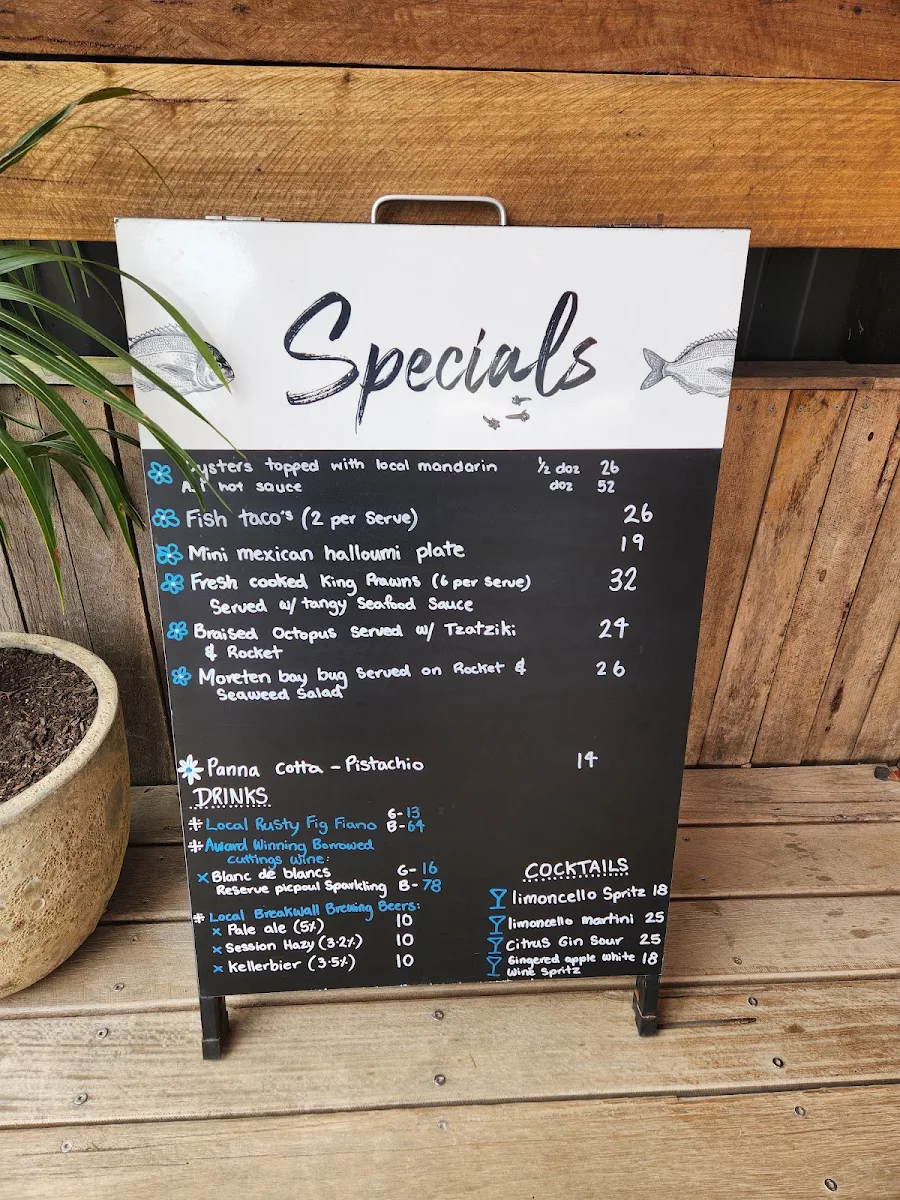 Specials
Oysters topped with local mandarin ½ doz 26
hot sauce doz 52
Fish taco's (2 per serve) 26
Mini mexican halloumi plate 19
Fresh cooked King Prawns (6 per serve) 32
Served w/ tangy Seafood Sauce
Braised Octopus served w/ Tzatziki 24
& Rocket
Moreten bay bug Served on Rocket & 26
Seaweed Salad
Panna Cotta - Pistachio 14
DRINKS
# Local Rusty Fig Fiano G-13
B-64
# Award Winning Borrowed
cuttings wine:
x Blanc de blancs G- 16
Reserve picpoul Sparkling B- 78
# Local Breakwall Brewing Beers:
x Pale ale (5%) 10
x Session Hazy (3.2%) 10
x Kellerbier (3.5%) 10
COCKTAILS
limoncello Spritz 18
limoncello martini 25
Citrus Gin Sour 25
Gingered apple white 18
Wine Spritz